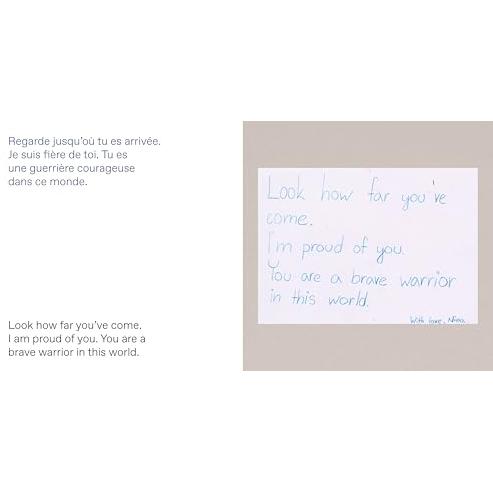 Regarde jusqu'où tu es arrivée.
Je suis fière de toi. Tu es
une guerrière courageuse
dans ce monde.
Look how far you've come.
I am proud of you. You are a
brave warrior in this world.
Look how far you've
come.
I'm proud of you.
You are a brave warrior
in this world.
With love, Nina